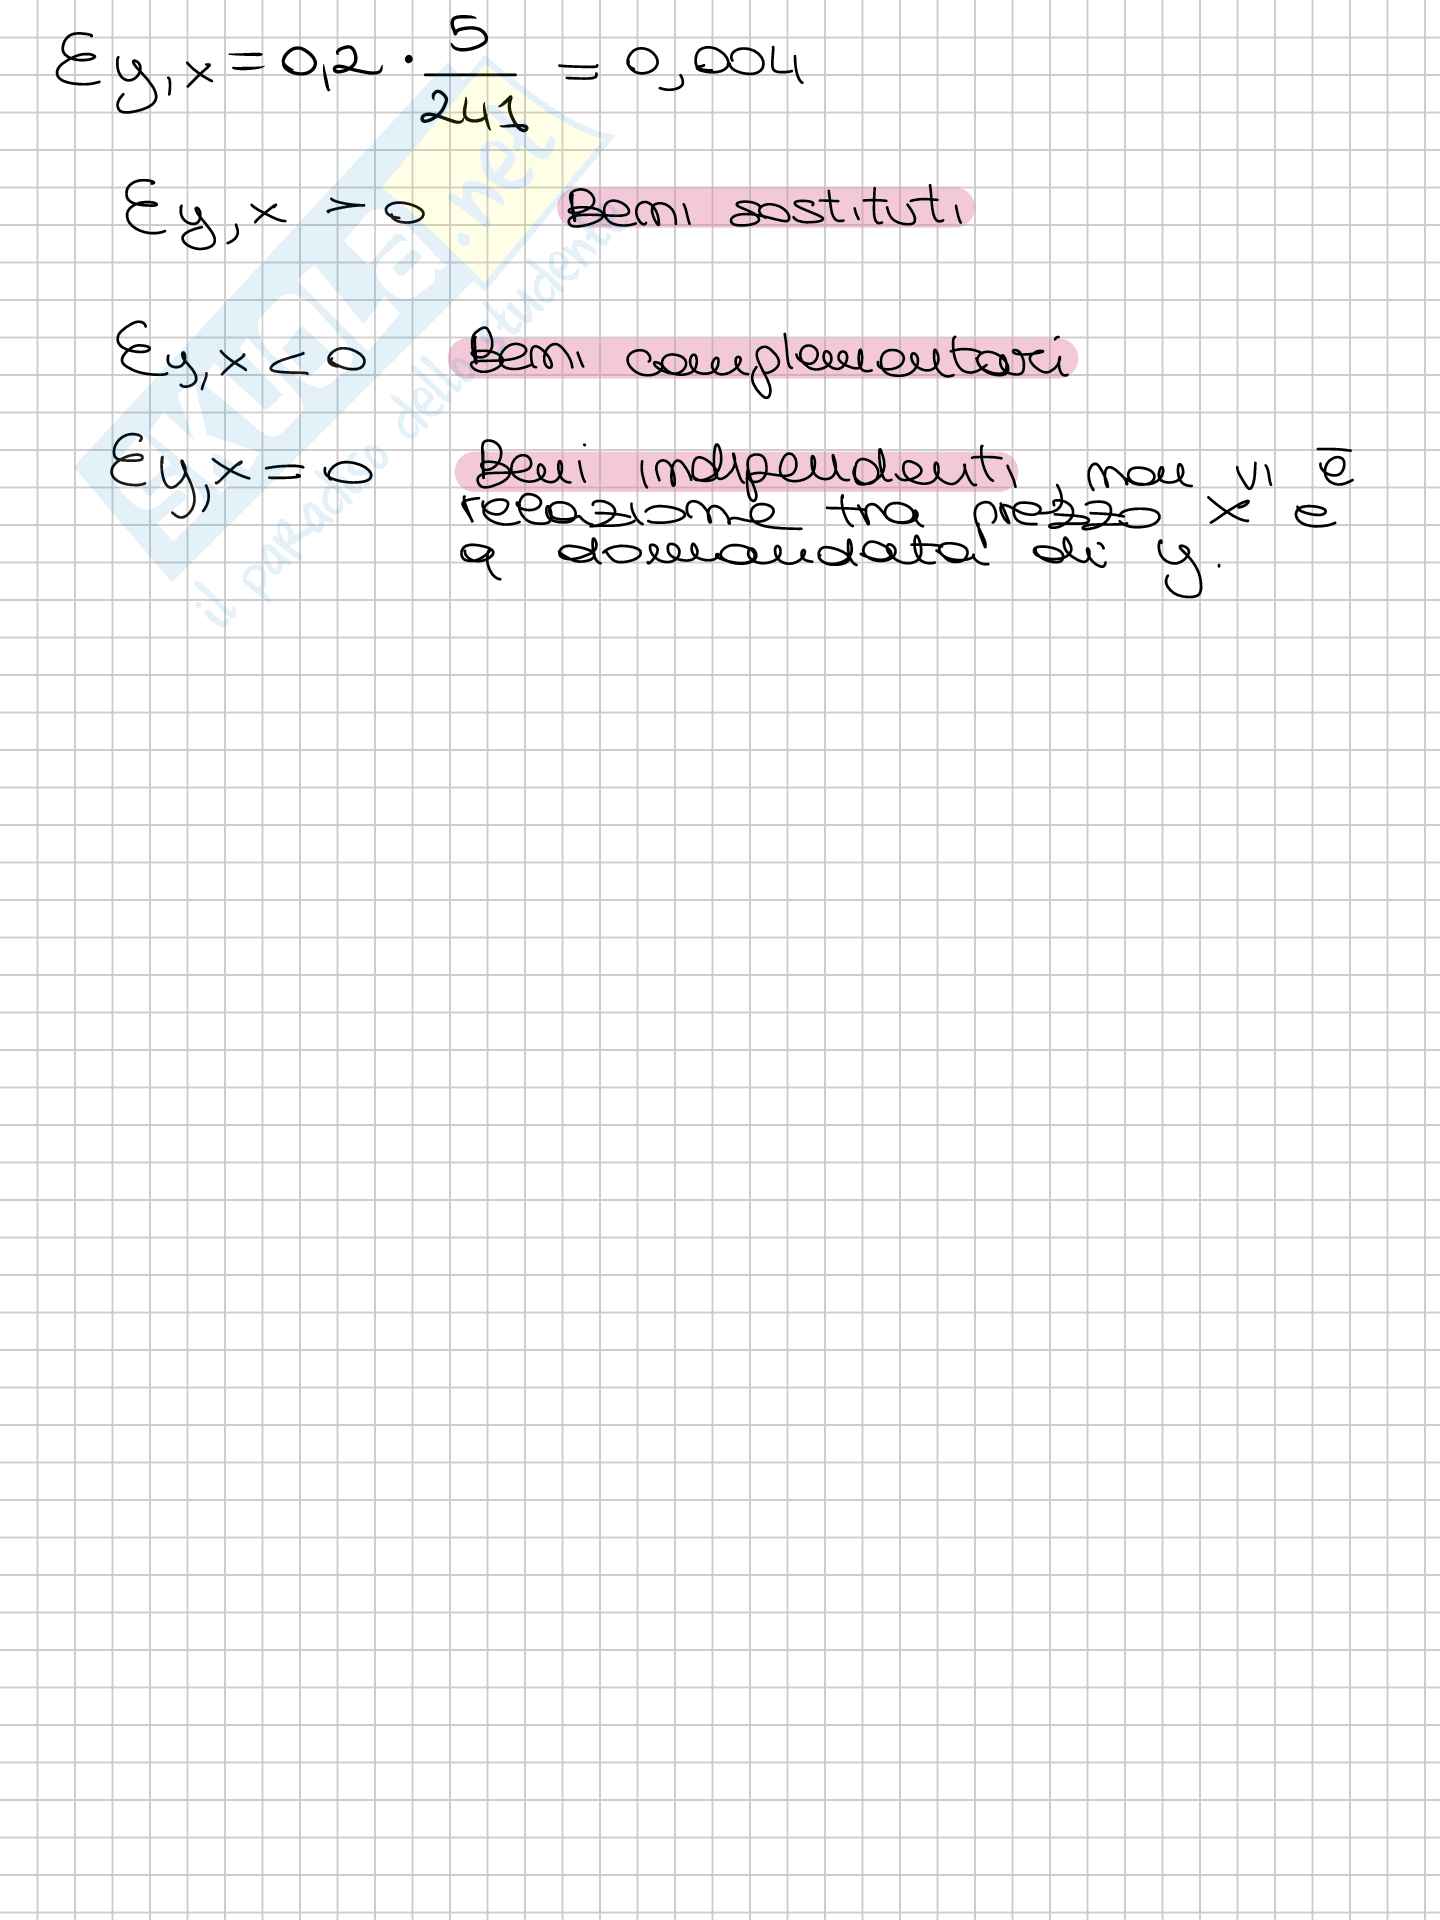 Ey,x = 0,2 · 5/241 = 0,004
Ey,x > 0 Beni sostituti
Ey,x < 0 Beni complementari
Ey,x = 0 Beni indipendenti, non vi è
relazione tra prezzo x e
q domandata di y.
SKUOLA.net
il paradiso dello studente